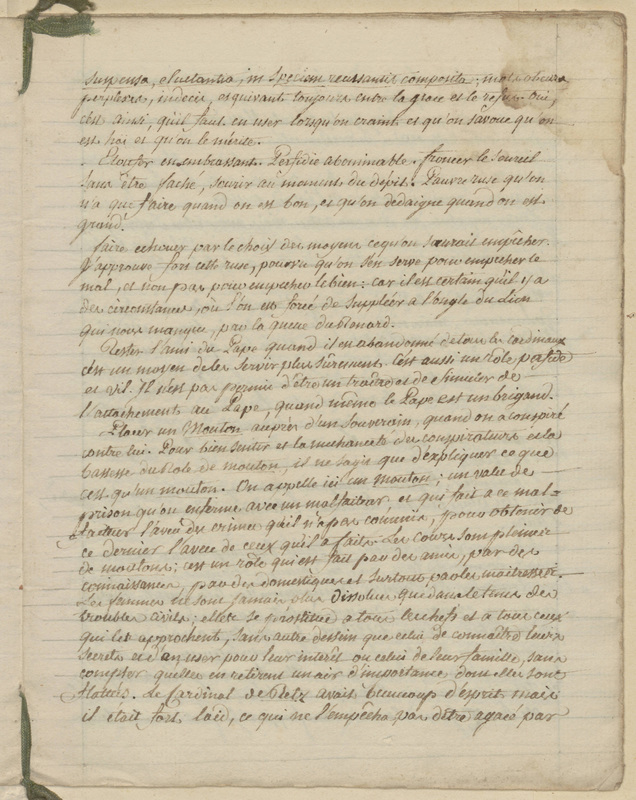 suspensa, eluctantia, in speciem recusantis composita; mots obscurs
perplexes, indecis, esquivant toujours entre la grace et le refus. Oui,
c'est ainsi, qu'il faut en user lorsqu'on craint et qu'on s'avoue qu'on
est haï et qu'on le mérite.
Etouffer en embrassant. Perfidie abominable. froncer le sourcil
sans être faché, sourir au moment du dépit. Pauvre ruse qu'on
n'a que faire quand on est bon, et qu'on dédaigne quand on est
grand.
faire echouer par le choix des moyens ce qu'on ne saurait empêcher.
J'approuve fort cette ruse, pourvu qu'on s'en serve pour empêcher le
mal, et non pas pour empecher le bien: car il est certain qu'il y a
des circonstances, où l'on est forcé de suppléer a l'ongle du Lion
qui nous manque, par la queue du Renard.
Rester l'ami du Pape quand il est abandonné de tous les cardinaux
c'est un moyen de les servir plus sûrement. C'est aussi un rôle perfide
et vil. Il n'est pas permis d'être un traître et de simuler de
l'attachement au Pape, quand même le Pape est un brigand.
Placer un Mouton auprès d'un souverain, quand on a conspiré
contre lui. Pour bien sentir et la mechanceté des conspirateurs et la
bassesse du Role de mouton, il ne s'agit que d'expliquer ce que
c'est qu'un mouton. On appelle ici un mouton; un valet de
prison qu'on enferme avec un malfaiteur et qui fait a ce mal=
faiteur l'aveu du crime qu'il n'a pas commis, pour obtenir de
ce dernier l'aveu de ceux qu'il a faits. Les cours sont pleines
de moutons; c'est un rôle qui est fait par des amis, par des
connaissances, par des domestiques et surtout par les maitresses.
Les femmes ne sont jamais plus dissolues que dans les tems de
troubles civils; elles se prostituent a tous les chefs et a tous ceux
qui les approchent, sans autre dessein que celui de connaître leurs
secrets et d'en user pour leur interêt ou celui de leur famille, sans
compter quelles en retirent un air d'importance dont elles sont
flattées. Le Cardinal de Retz avait beaucoup d'esprit mais
il était fort laid, ce qui ne l'empêcha pas d'être agacé par